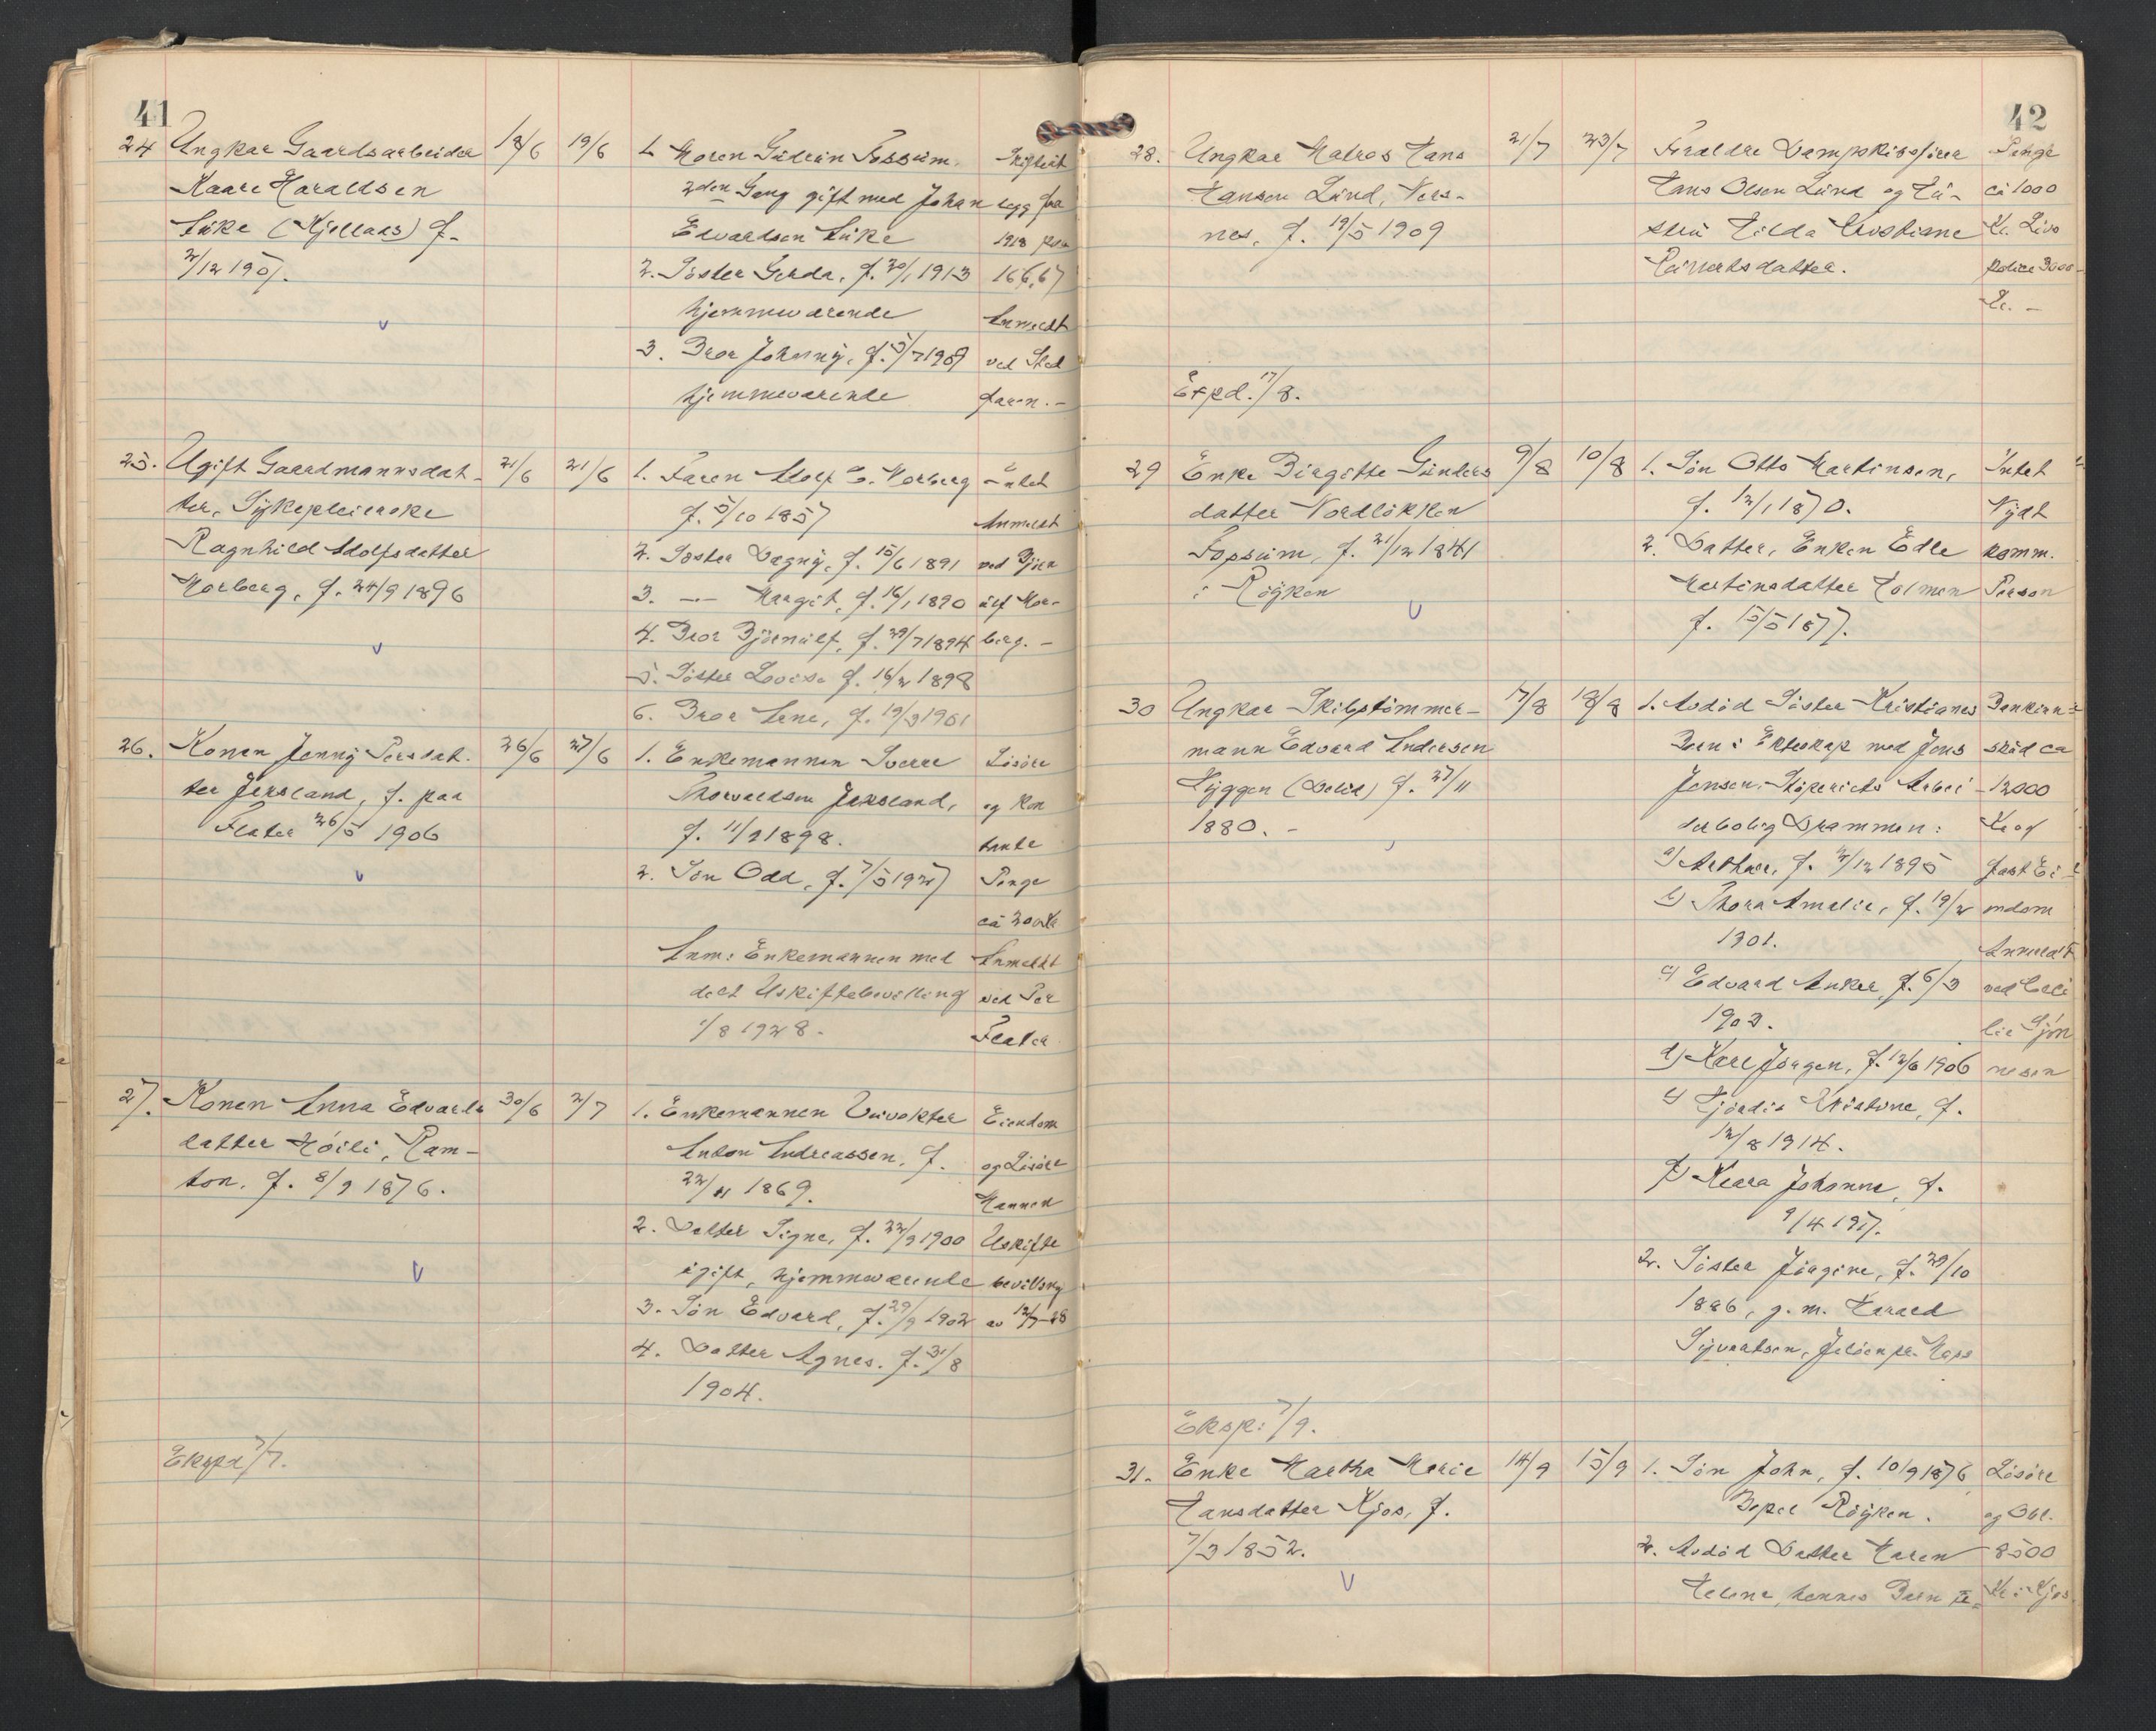 41
24 Ungkar Gaardsarbeider 18/6 19/6 1. Moren Gudrun Fossum,
Kaare Haraldsen 2den Gang gift med Johan
Auke (Kjellaas) f. Edvardsen Auke 1918 paa
2/12 1907. 2. Søster Gerda, f. 20/1 1913 166,67
hjemmeværende Anmeldt
3. Bror Johnny, f. 5/7 1909 ved Sted
hjemmeværende faren. -
25. Ugift Gaardmannsdat- 21/6 21/6 1. Faren Adolf E. Morberg Intet
ter, Sykepleierske f. 5/10 1857 Anmeldt
Ragnhild Adolfsdatter 2. Søster Dagny, f. 15/6 1891 ved Bjørn
Morberg, f. 24/9 1896 3. -"- Margit, f. 16/1 1890 ulf Mor-
4. Bror Bjørnulf, f. 29/7 1894 berg. -
5. Søster Lovise f. 16/2 1898
6. Bror Arne, f. 19/3 1901
26. Konen Jenny Persdat- 26/6 27/6 1. Enkemannen Sverre Løsøre
ter Jersland, f. paa Thorvaldsen Jersland, og kon
Flater 26/5 1906 f. 11/2 1898. tante
2. Søn Odd, f. 7/5 1927 Penge
ca 200 Kr
Anm: Enkemannen med Anmeldt
delt Uskiftebevilling ved Per
1/8 1928. Flater
27. Konen Anna Edvards 30/6 2/7 1. Enkemannen Eiendom
datter Høili, Ram- Anton Andreassen, f. og Løsøre
ton, f. 8/9 1876. 22/11 1869. Mannen
2. Datter Signe, f. 22/9 1900 Uskifte
ugift, hjemmeværende bevilling
3. Søn Edvard, f. 29/9 1902 av 12/7-28
4. Datter Agnes. f. 31/8
1904.
Ekspd 7/7.
42
28. Ungkar Matros Hans 21/7 23/7 Foreldre Dampskibsfører Penge
Hansen Lund, Ners- Hans Olsen Lund og Hu- ca 1000
nes, f. 19/5 1909 stru Hilda Kristiane Kr. Livs
police 3000
Kr. -
Expd. 17/8.
29 Enke Birgitte Gunders 9/8 10/8 1. Søn Otto Martinsen, Intet
datter Nordløkken f. 12/1 1870. Nydt
Fossum, f. 21/12 1841 2. Datter, Enken Edle komm.
i Røyken Martinsdatter Holmen Person
f. 15/5 1877.
30 Ungkar Skibstømmer- 17/8 18/8 1. Avdød Søster Kristianes Bankinn-
mann Edvard Andersen Barn i Ekteskap med Jens skud ca
Hyggen (Dalen) f. 27/11 Jensen, Arbei- 12000
1880. - derbolig Drammen: Kr og
a) Arthur, f. 2/12 1895 fast Ei-
b) Thora Amalie, f. 19/2 endom
1901. Anmeldt
c) Edvard Anker, f. 6/3 ved
1903.
d) Karl Jørgen, f. 12/6 1906
e) Hjørdis Kristine, f.
12/8 1914.
f) Klara Johanne, f.
9/4 1917.
2. Søster Jørgine, f. 29/10
1886, g. m. Harald
Syvertsen, Jeløen pr. Moss
Eksp: 7/9.
31. Enke Martha Marie 14/9 15/9 1. Søn John, f. 10/9 1876 Løsøre
Hansdatter Kjos, f. Røyken. og Obl.
7/3 1852. 2. Avdød Datter Karen 8500
Helene, hennes Barn Kr. i Kjos